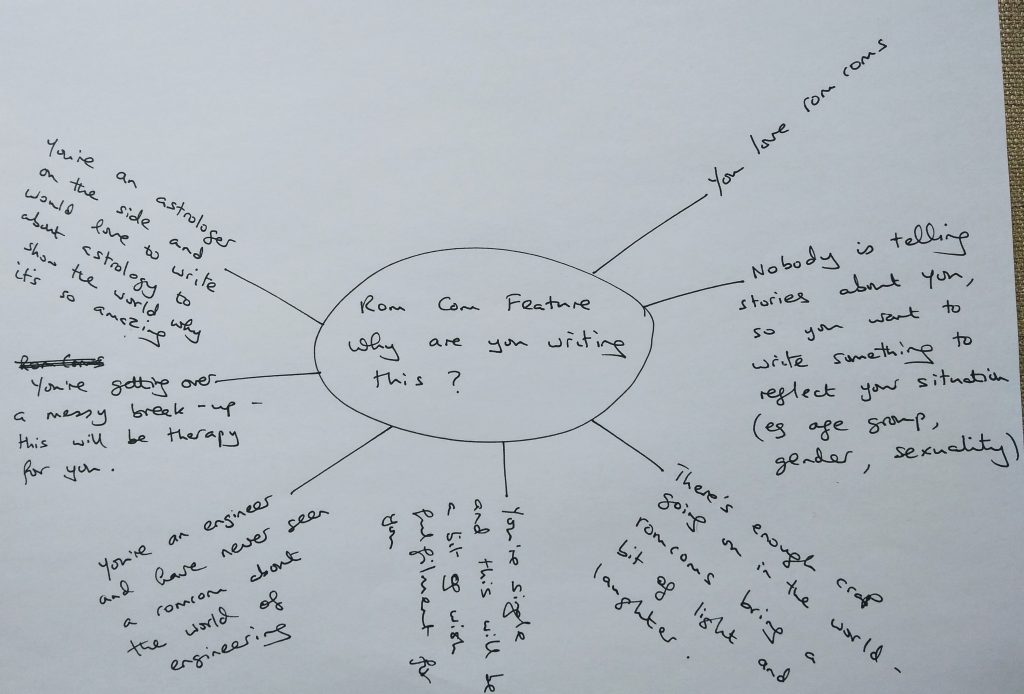 Rom Com Feature
why are you writing
this?
You love rom coms
Nobody is telling
stories about you,
so you want to
write something to
reflect your situation
(eg age group,
gender, sexuality)
There's enough crap
going on in the world -
romcoms bring a
bit of light and
laughter.
You're single
and this will be
a bit of wish
fulfilment for
you
You're an engineer
and have never seen
a romcom about
the world of
engineering
Rom Coms
You're getting over
a messy break-up -
this will be therapy
for you.
You're an astrologer
on the side and
would love to write
about astrology to
show the world why
it's so amazing